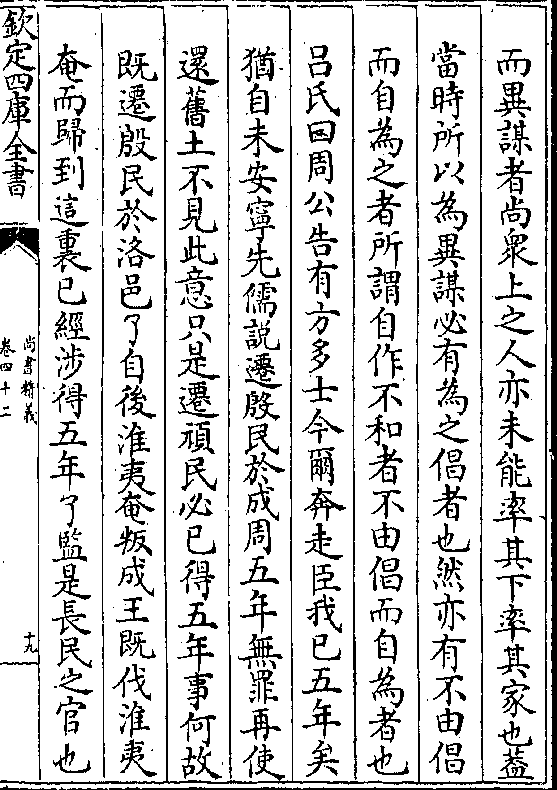 而異謀者尚衆上之人亦未能率其下率其家也葢
當時所以為異謀必有為之倡者也然亦有不由倡
而自為之者所謂自作不和者不由倡而自為者也
吕氏曰周公告有方多士今爾奔走臣我已五年矣
猶自未安寧先儒説遷殷民於成周五年無罪再使
還舊土不見此意只是遷頑民必已得五年事何故
既遷殷民於洛邑了自後淮夷奄叛成王既伐淮夷
奄而歸到這裏已經涉得五年了監是長民之官也
欽定四庫全書
尚書精義
卷四十二
十九